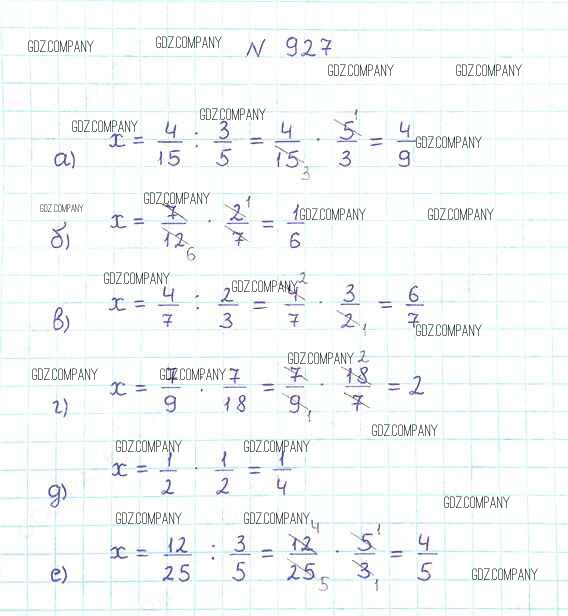 GDZ.COMPANY GDZ.COMPANY N 927
GDZ.COMPANY GDZ.COMPANY
GDZ.COMPANY GDZ.COMPANY
а) x = 4/15 : 3/5 = 4/15 3 · 5 1/3 = 4/9 GDZ.COMPANY
GDZ.COMPANY GDZ.COMPANY
б) x = 7/12 6 · 2 1/7 = 1/6 GDZ.COMPANY GDZ.COMPANY
GDZ.COMPANY GDZ.COMPANY
в) x = 4/7 : 2/3 = 4 2/7 · 3/2 1 = 6/7
GDZ.COMPANY
GDZ.COMPANY
GDZ.COMPANY GDZ.COMPANY
г) x = 7/9 · 7/18 = 7/9 1 · 18 2/7 = 2
GDZ.COMPANY
GDZ.COMPANY GDZ.COMPANY
д) x = 1/2 · 1/2 = 1/4
GDZ.COMPANY
GDZ.COMPANY GDZ.COMPANY
е) x = 12/25 : 3/5 = 12 4/25 5 · 5 1/3 1 = 4/5
GDZ.COMPANY